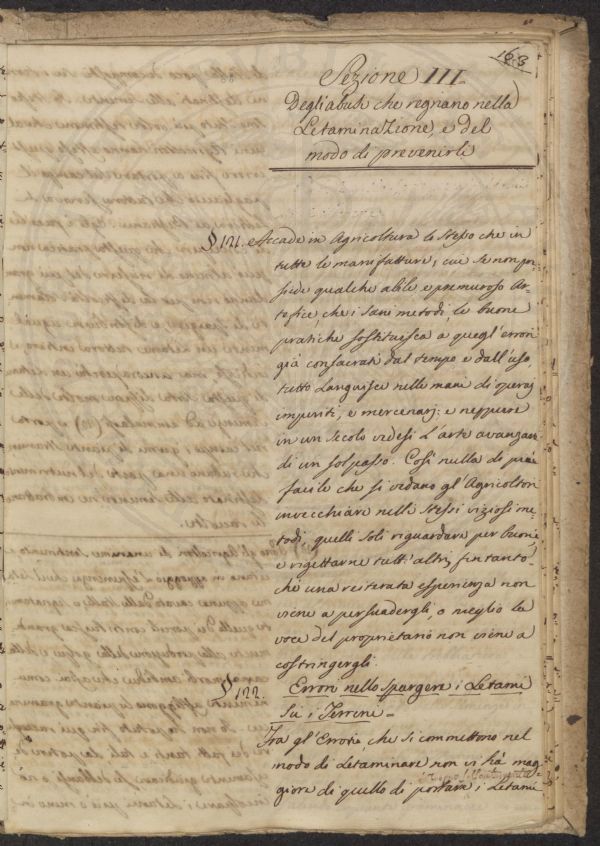 163
Sezione III
Degli abusi che regnano nella
Letaminazione, e del
modo di prevenirli
§ 121. Accade in Agricoltura lo stesso che in
tutte le manifatture, cui se non pos-
siede qualche abile e premuroso Ar-
tefice, che i sani metodi, le buone
pratiche sostituisca a quegl'errori
già consacrati dal tempo e dall'uso,
tutto Languisce nelle mani di operaj
imperiti, e mercenarj: e neppure
in un Secolo vedesi L'arte avanzar
di un sol passo. Così nulla di più
facile che si vedano gl'Agricoltori
invecchiare nelli stessi viziosi me-
todi, quelli soli riguardare per buoni,
e rigettarne tutt'altri, fintanto-
chè una reiterata esperienza non
viene a persuadergli, o meglio la
voce del proprietario non viene a
costringergli.
§ 122. Errori nello spargere i Letami
su i Terreni -
Fra gl'Errori che si commettono nel
modo di Letaminare non vi hà mag-
giore di quello di portare i Letami